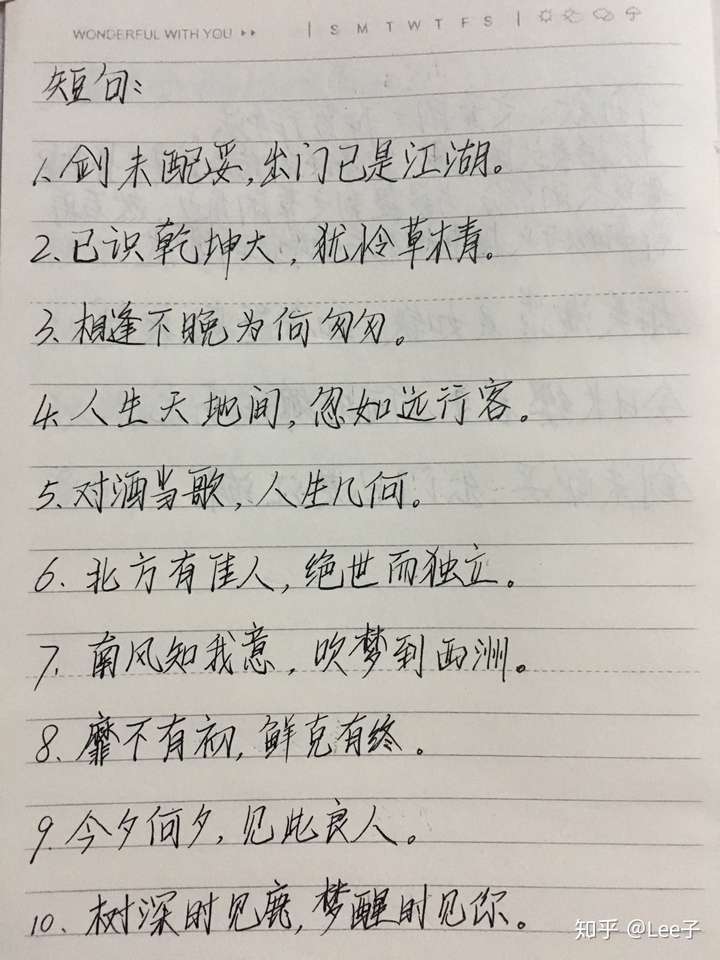 WONDERFUL WITH YOU ▸▸ | S M T W T F S |
短句:
1、剑未配妥,出门已是江湖。
2、已识乾坤大,犹怜草木青。
3、相逢不晚为何匆匆。
4、人生天地间,忽如远行客。
5、对酒当歌,人生几何。
6、北方有佳人,绝世而独立。
7、南风知我意,吹梦到西洲。
8、靡不有初,鲜克有终。
9、今夕何夕,见此良人。
10、树深时见鹿,梦醒时见你。
知乎 @Lee子